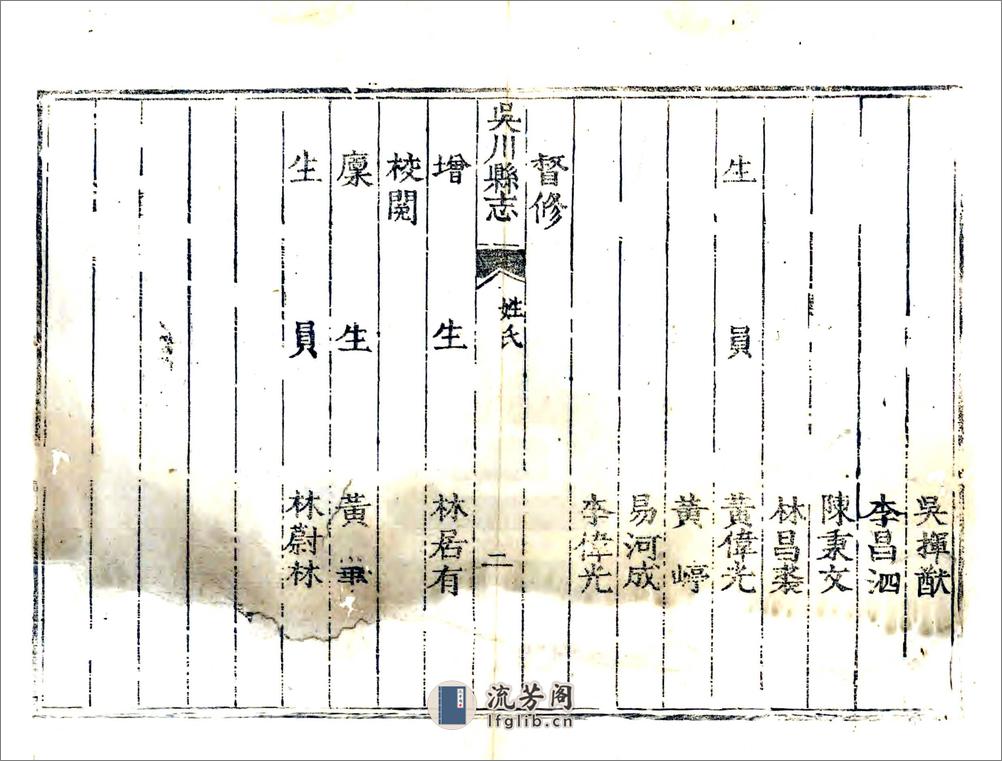 吳揮猷
李昌泗
陳秉文
林昌裘
生員 黃偉光
黃婷
易河成
李偉光
督修
吳川縣志 姓氏 二
增生 林居有
校閱
廩生 黃
生員 林蔚林
流芳阁
lfglib.cn